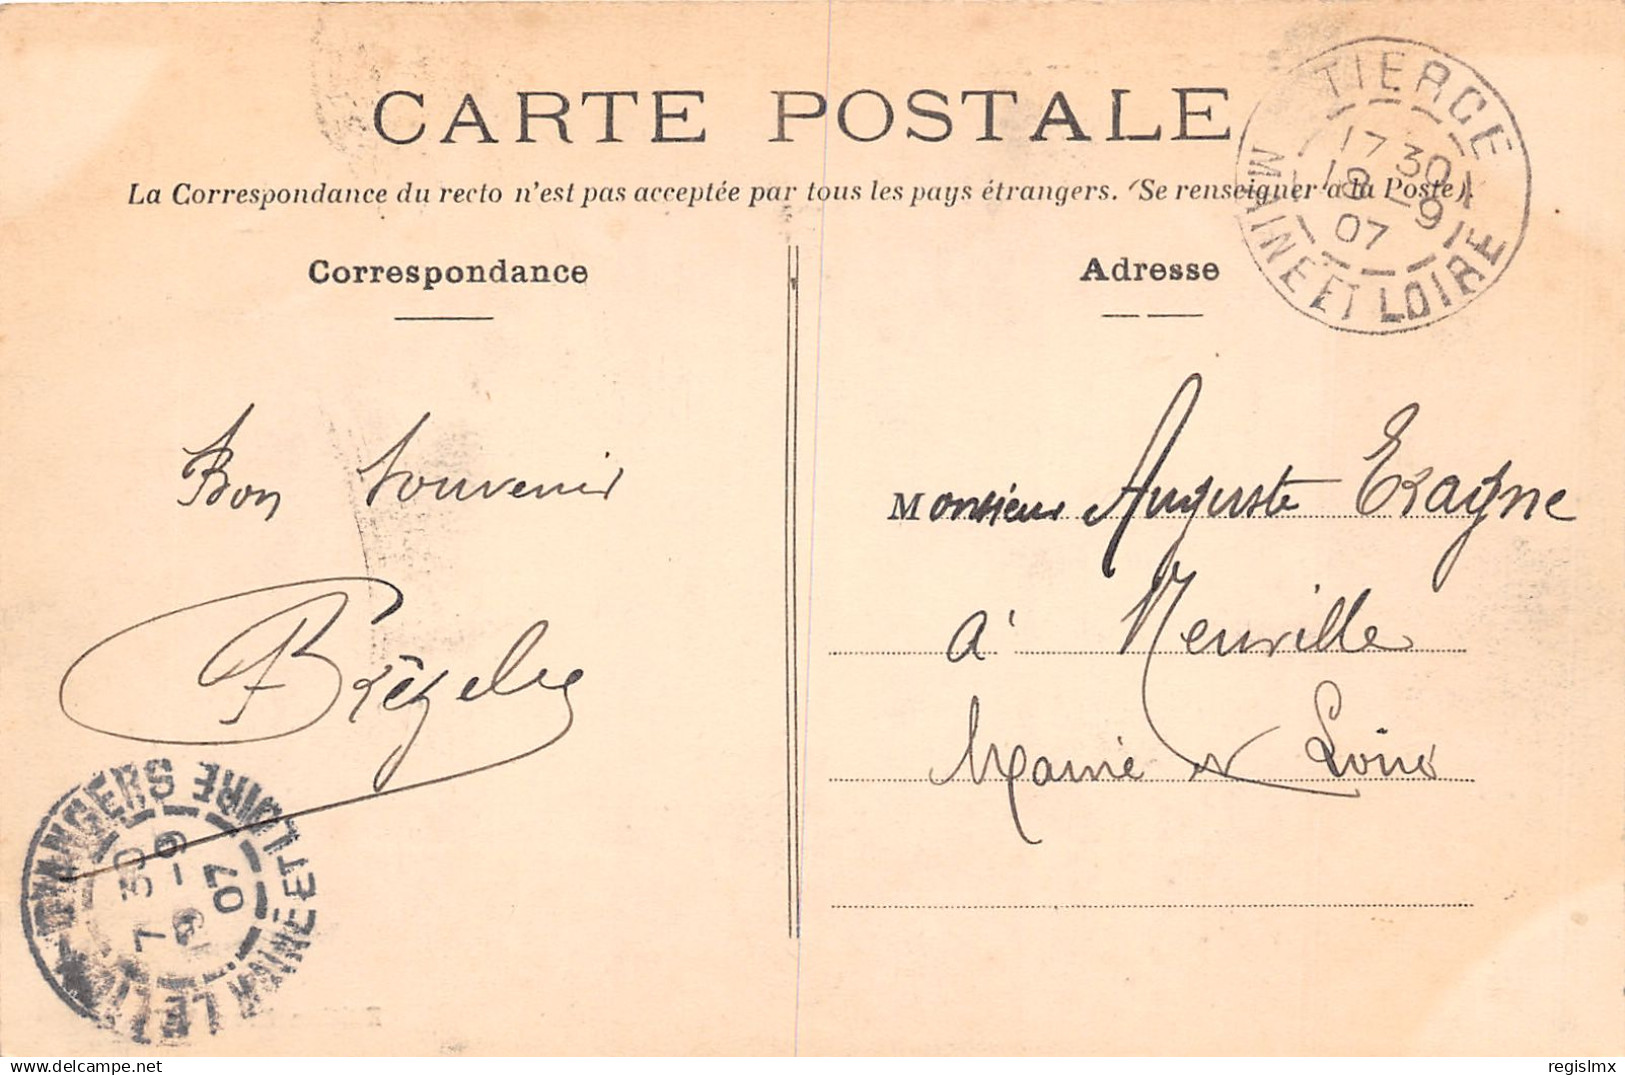 CARTE POSTALE
La Correspondance du recto n'est pas acceptée par tous les pays étrangers. (Se renseigner à la Poste).
TIERCE
17 30
18 -9
07
MAINE ET LOIRE
Correspondance
Adresse
Bon Souvenir
Monsieur Auguste
à Neuville
Maine et Loire
ANGERS
7 30
19 -9
07
MAINE ET LOIRE
regislmx